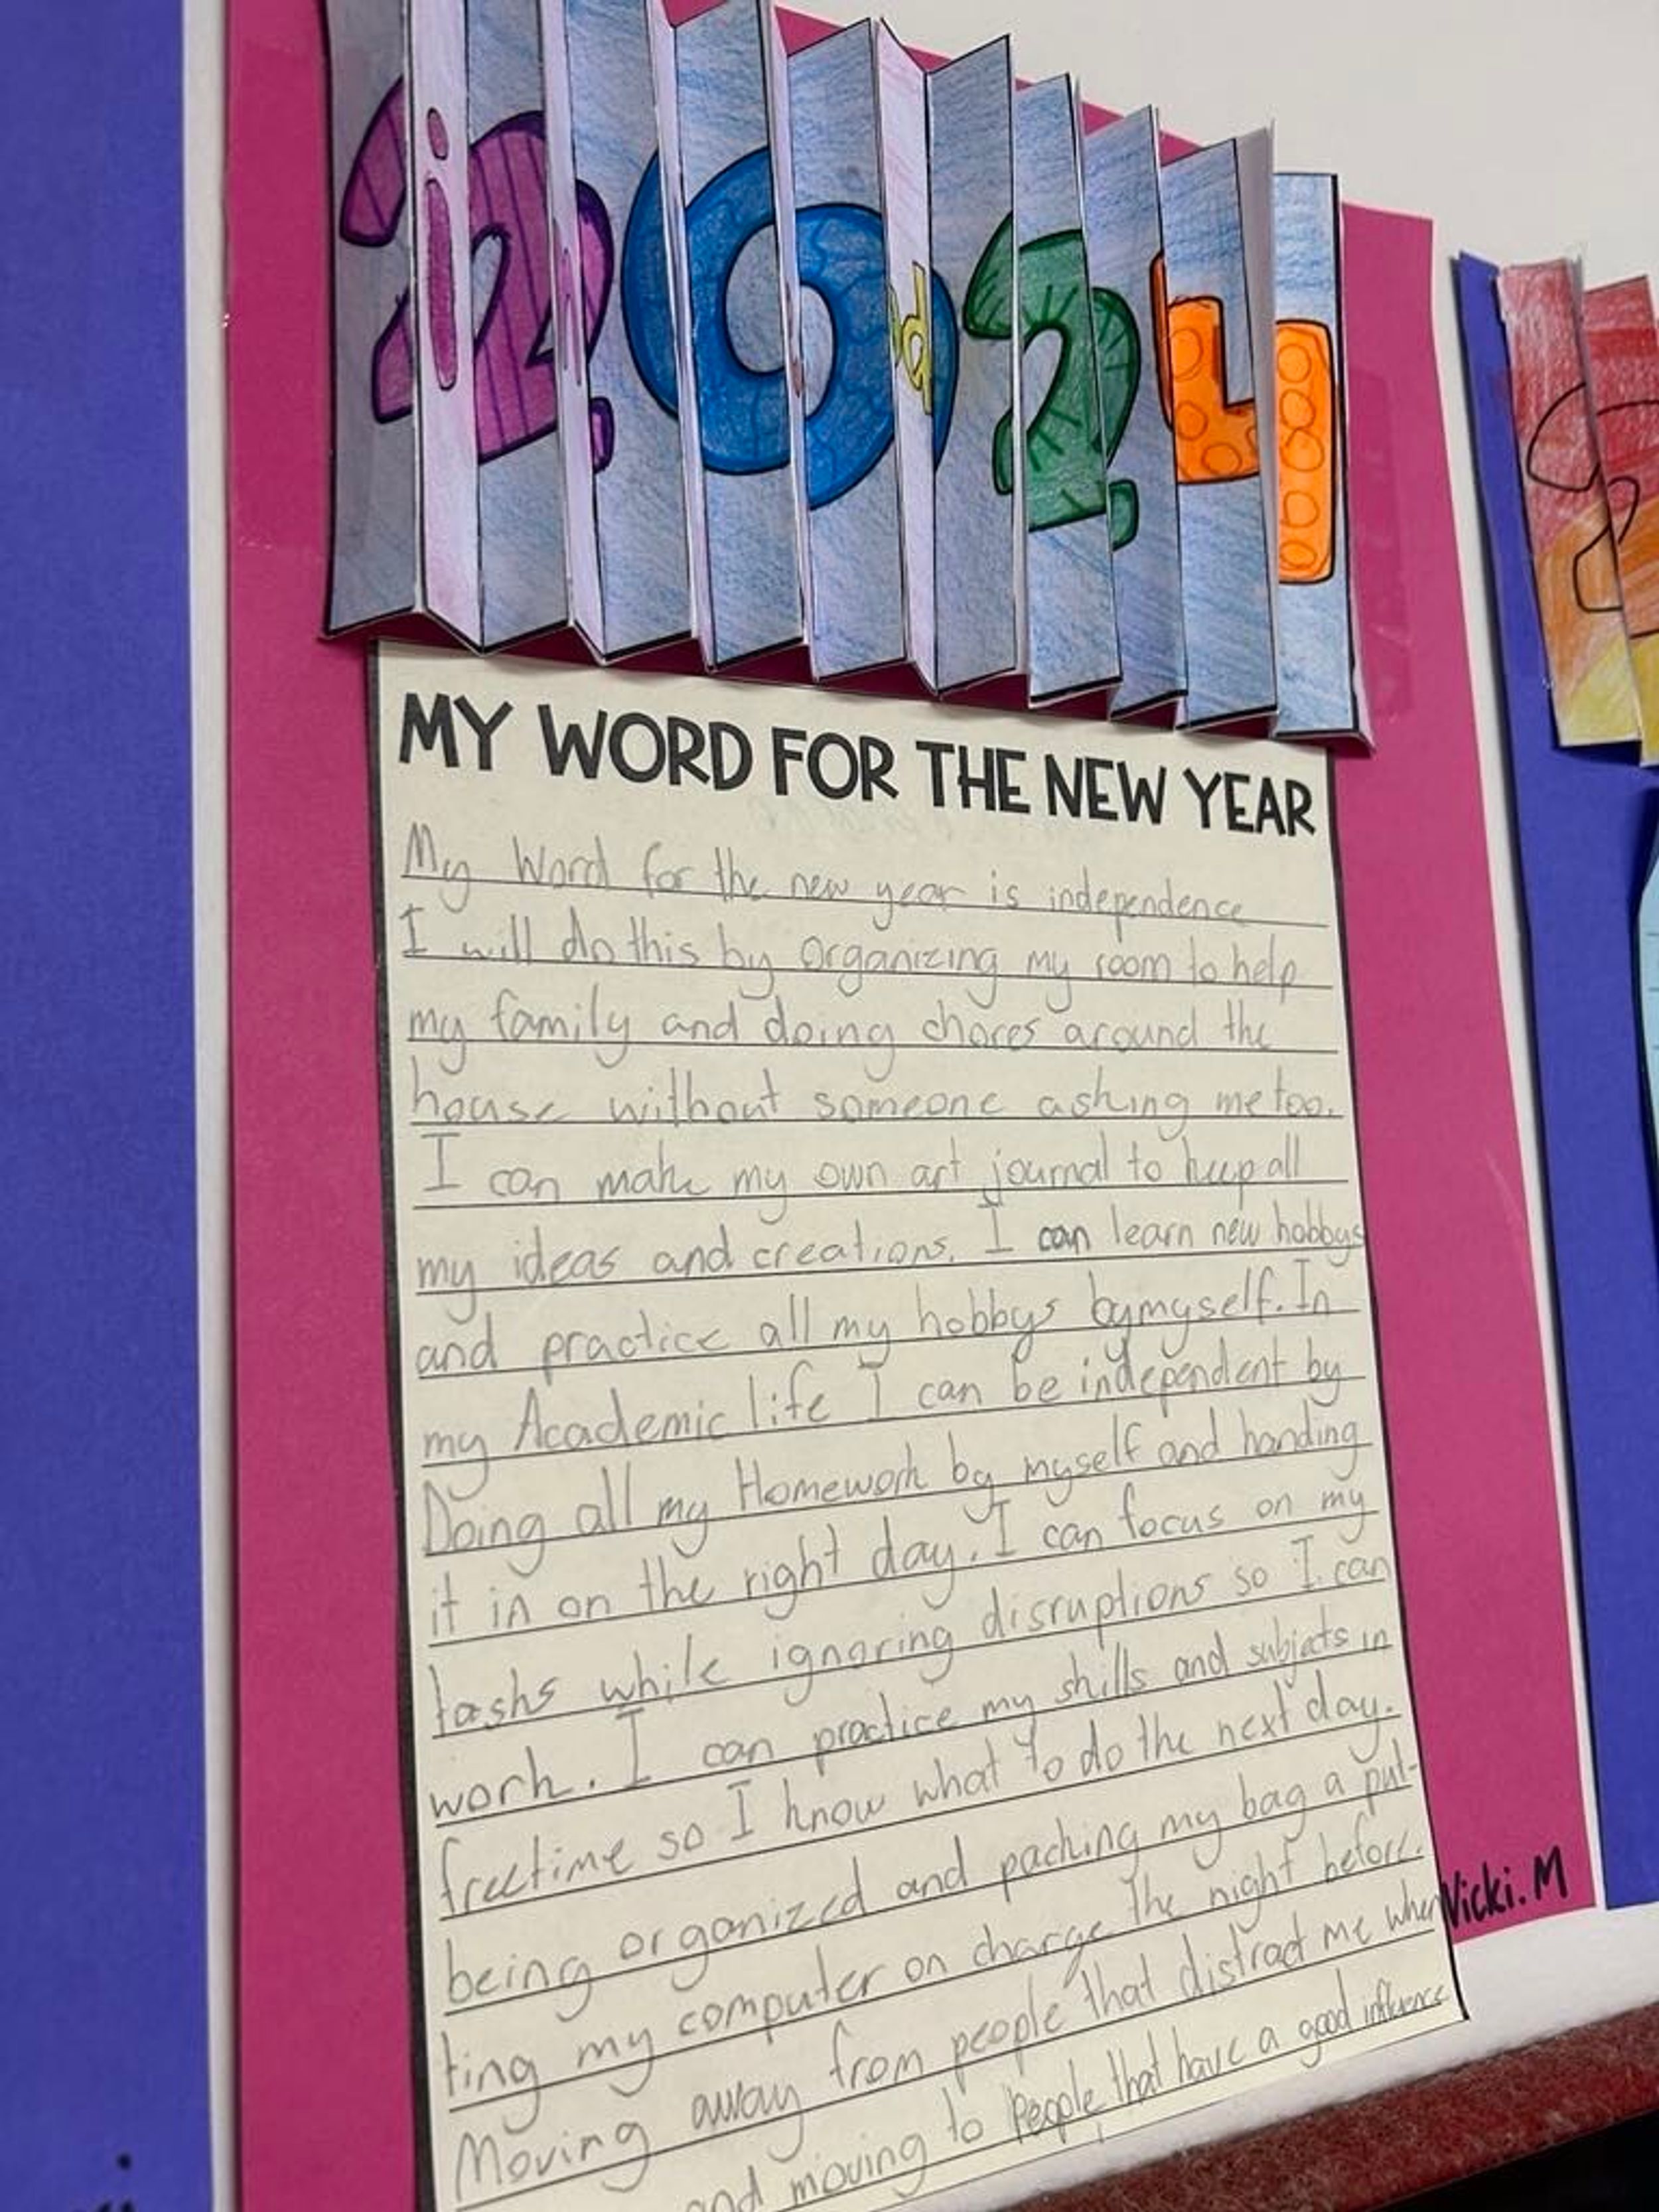 2024
MY WORD FOR THE NEW YEAR
My Word for the new year is independence
I will do this by Organizing my room to help
my family and doing chores around the
house without someone asking me too.
I can make my own art journal to keep all
my ideas and creations. I can learn new hobbys
and practice all my hobbys bymyself. In
my Academic life I can be independent by
Doing all my Homework by myself and handing
it in on the right day. I can focus on my
tasks while ignoring disruptions so I can
work. I can practice my skills and subjects in
freetime so I know what to do the next day.
being organized and packing my bag a put-
ting my computer on charge the night before.
Moving away from people that distract me when
and moving to People that have a good influence
Vicki. M